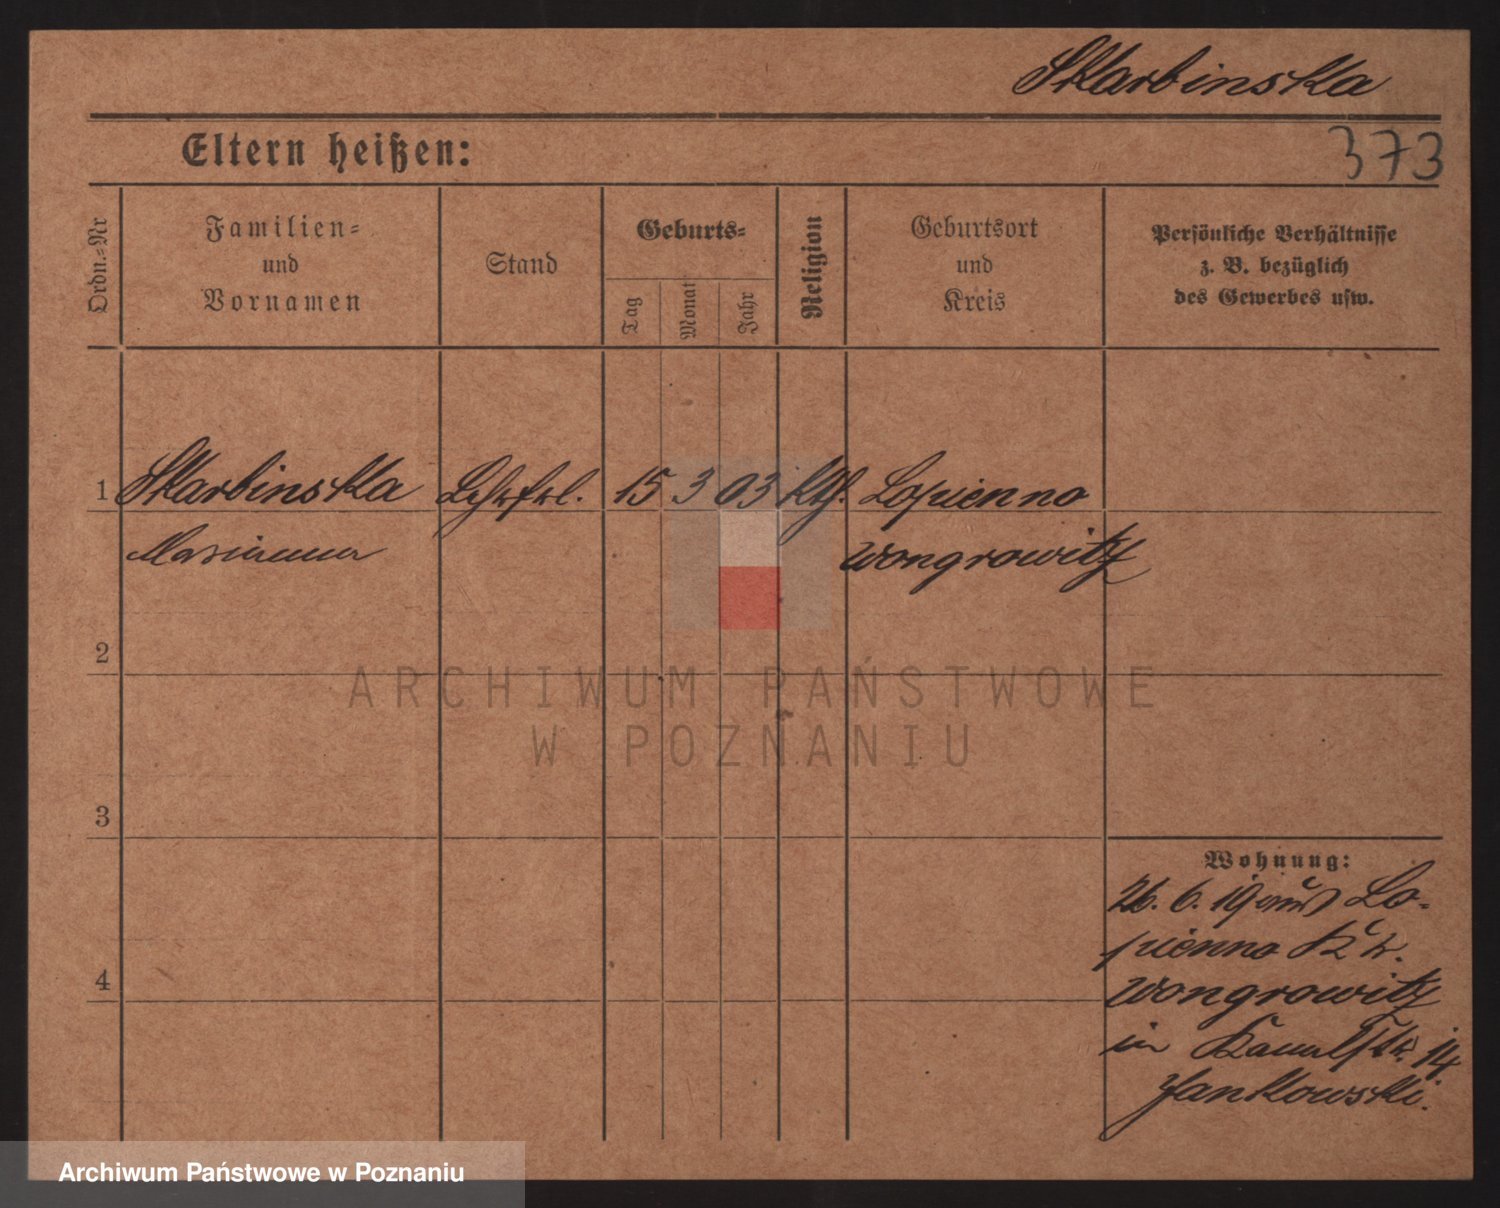 Skarbinska
Eltern heißen:
373
Ordn.-Nr
Familien-
und
Vornamen
Stand
Geburts-
Tag
Monat
Jahr
Religion
Geburtsort
und
Kreis
Persönliche Verhältnisse
z. B. bezüglich
des Gewerbes usw.
1 Skarbinska Lehrfrl. 15 3 03 kth. Lopienno
Marianna Wongrowitz
2
ARCHIWUM PAŃSTWOWE
W POZNANIU
3
Wohnung:
26. 6. 19 aus Lo-
pienno Kr.
4
Wongrowitz
in Kanalstr. 14
Jankowski.
Archiwum Państwowe w Poznaniu